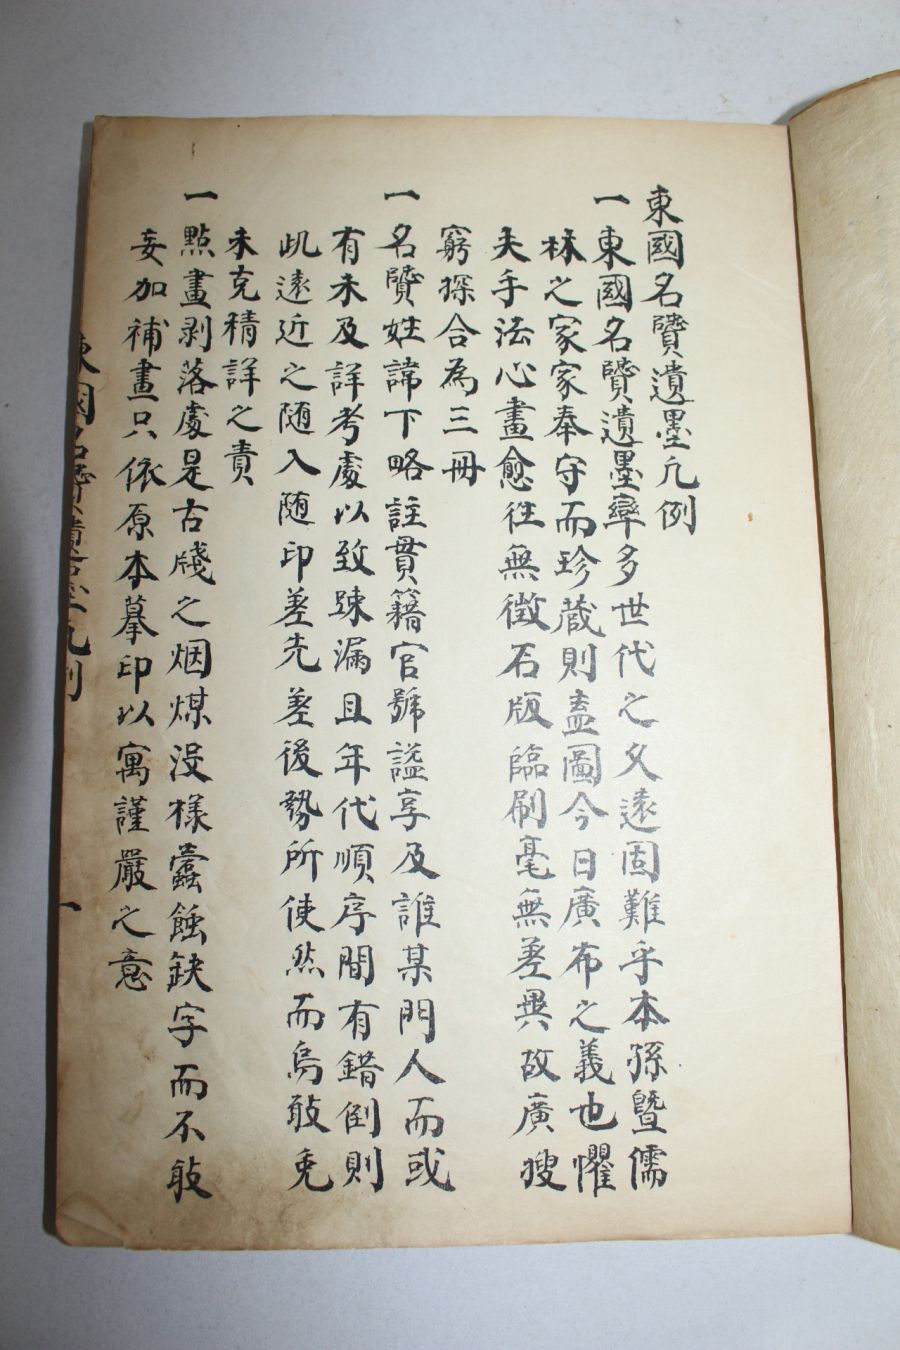 東國名賢遺墨凡例
一東國名賢遺墨率多世代之久遠固難乎本孫曁儒
林之家家奉守而珍蔵則盍圖今日廣布之義也懼
夫手法心畫愈往無徴石版臨刷毫無差異故廣搜
窮探合為三冊
一名賢姓諱下略註貫籍官號謚享及誰某門人而或
有未及詳考處以致踈漏且年代順序間有錯倒則
此遠近之随入随印差先差後勢所使然而烏敢免
未克精詳之責
一點畫剥落處是古牋之烟煤没様蠧蝕缺字而不敢
妄加補畫只依原本摹印以寓謹嚴之意
東國名賢遺墨凡例
一